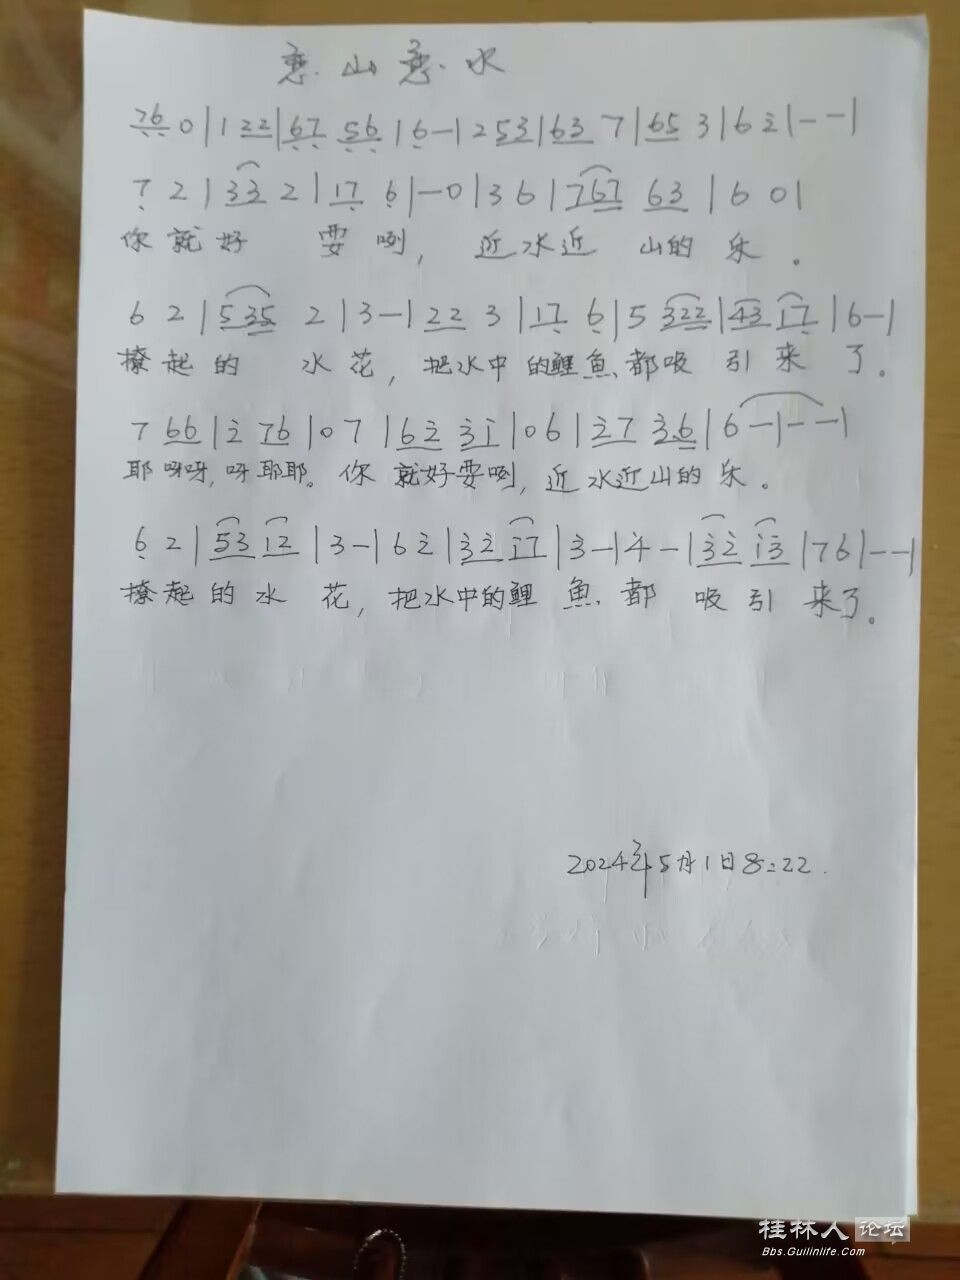 恋山恋水
76 0 | 1 22 | 67 56 | 6 - | 2 53 | 63 7 | 65 3 | 6 2 | - - |
7 2 | 33 2 | 17 6 | - 0 | 3 6 | 767 63 | 6 0 |
你就好 耍咧，近水近 山的乐。
6 2 | 535 2 | 3 - | 22 3 | 17 6 | 5 322 | 43 17 | 6 - |
撩起的 水花，把水中的鲤魚都吸引来了。
7 66 | 2 76 | 0 7 | 62 31 | 0 6 | 27 36 | 6 - | - - |
耶呀呀，呀耶耶。你就好耍咧，近水近山的乐。
6 2 | 53 12 | 3 - | 6 2 | 32 17 | 3 - | 4 - | 32 13 | 76 | - - |
撩起的水花，把水中的鲤魚都吸引来了。
2024年5月1日8:22.
桂林人论坛
Bbs.Guilinlife.Com